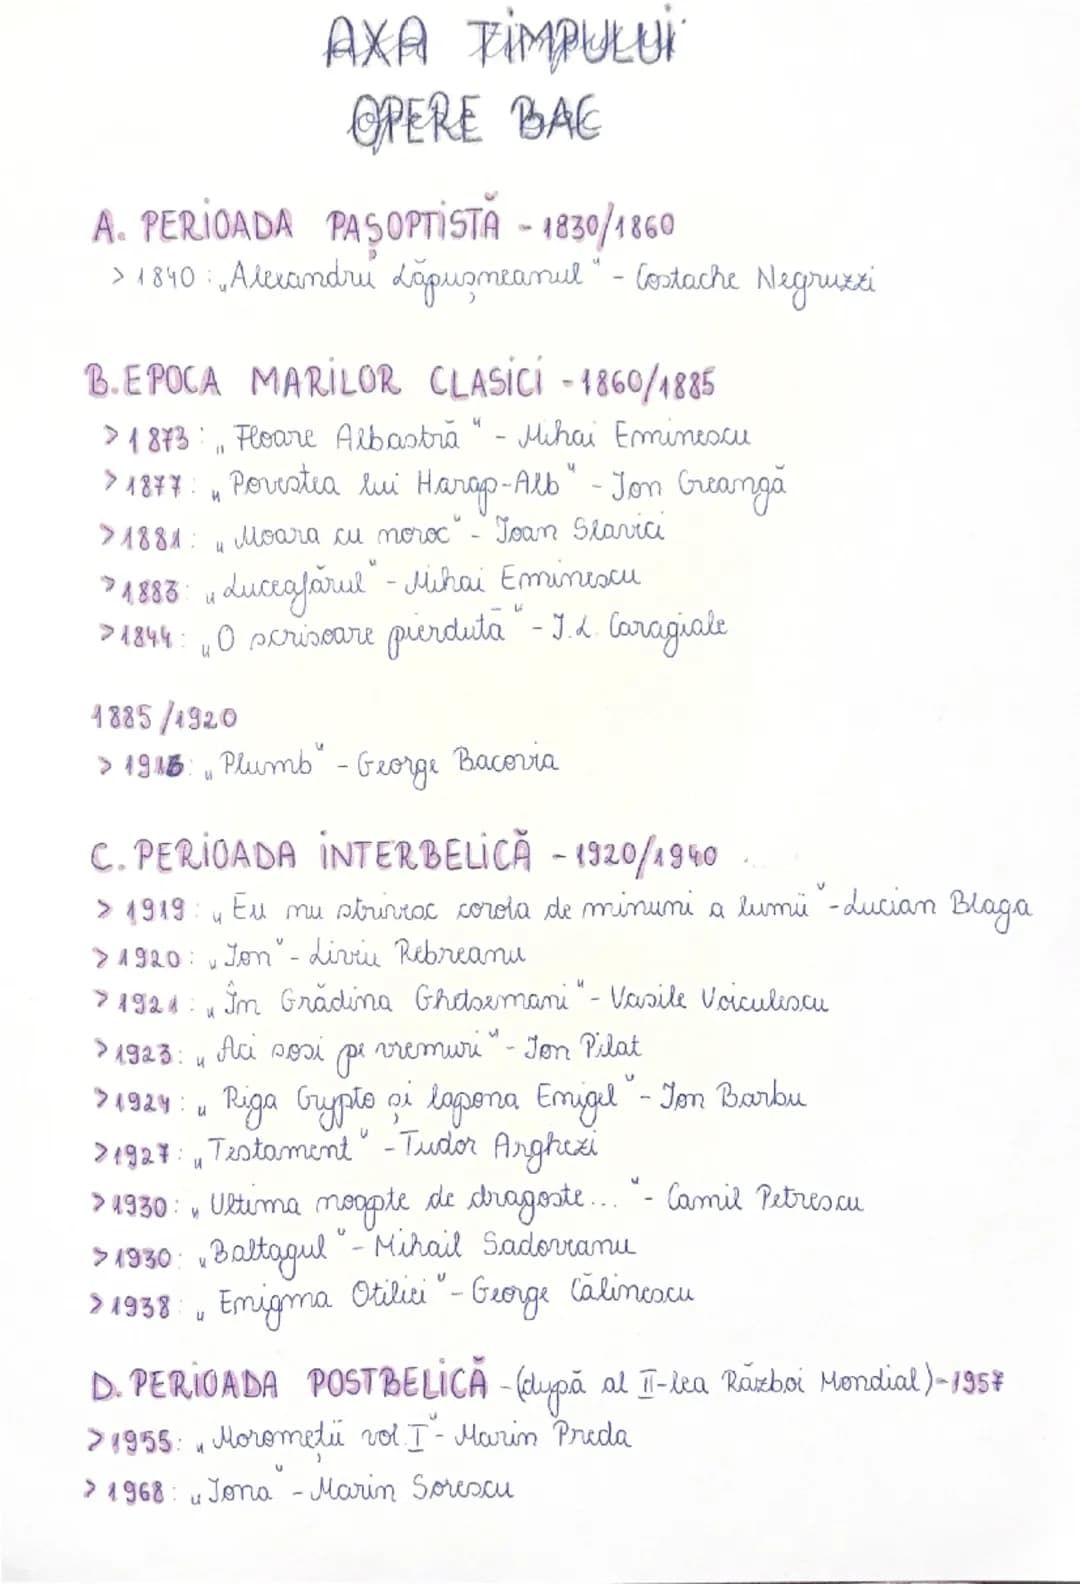 AXA TIMPULUI
OPERE BAC
A. PERIOADA PAȘOPTISTĂ - 1830/1860
> 1840: „Alexandru Lăpușneanul" - Costache Negruzzi
B. EPOCA MARILOR CLASICI - 1860/1885
> 1873: „Floare Albastră" - Mihai Eminescu
> 1877: „Povestea lui Harap-Alb" - Ion Creangă
> 1881: „Moara cu noroc" - Ioan Slavici
> 1883: „Luceafărul" - Mihai Eminescu
> 1844: „O scrisoare pierdută" - I.L. Caragiale
1885/1920
> 1916: „Plumb" - George Bacovia
C. PERIOADA INTERBELICĂ - 1920/1940
> 1919: „Eu nu strivesc corola de minuni a lumii" - Lucian Blaga
> 1920: „Ion" - Liviu Rebreanu
> 1921: „În Grădina Ghetsemani" - Vasile Voiculescu
> 1923: „Aci sosi pe vremuri" - Ion Pilat
> 1924: „Riga Crypto și lapona Enigel" - Ion Barbu
> 1927: „Testament" - Tudor Arghezi
> 1930: „Ultima noapte de dragoste..." - Camil Petrescu
> 1930: „Baltagul" - Mihail Sadoveanu
> 1938: „Enigma Otiliei" - George Călinescu
D. PERIOADA POSTBELICĂ - (după al II-lea Război Mondial) - 1957
> 1955: „Moromeții vol. I" - Marin Preda
> 1968: „Iona" - Marin Sorescu